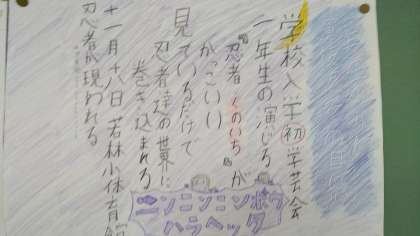 学校入学初学芸会
一年生の演じる
『忍者くのいち』が
かっこいい
見ているだけで
忍者達の世界に
巻き込まれる
十一月十八日 若林小体育館
忍者が現われる
ニンニンニンポウ
ハラヘッタ